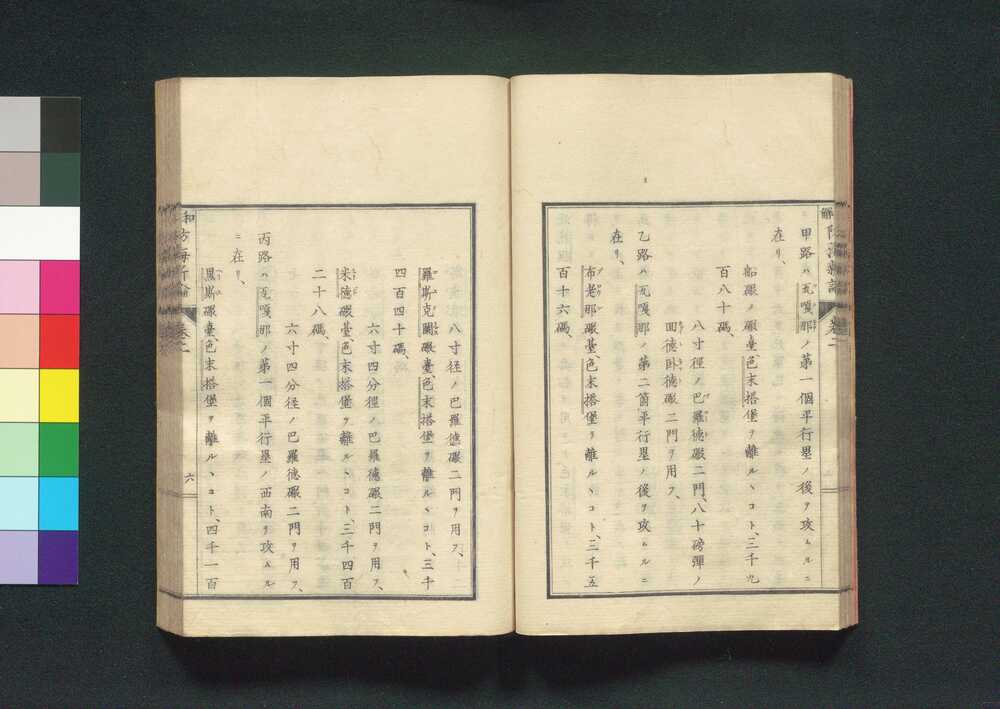 甲路ハ瓦嘎那ノ第一個平行塁ノ後ヲ攻ムルニ
在リ、
船礮ノ礮臺、色末搭堡ヲ離ルヽコト、三千九
百八十碼、
八寸徑ノ巴羅德礮二門、八十磅彈ノ
回德臥德礮二門ヲ用フ、
乙路ハ瓦嘎那ノ第二箇平行塁ノ後ヲ攻ムルニ
在リ、
布老那礮臺、色末搭堡ヲ離ルヽコト、三千五
百十六碼、
八寸径ノ巴羅德礮二門ヲ用フ、
羅斯克關礮臺、色末搭堡ヲ離ルヽコト、三千
四百四十碼、
六寸四分徑ノ巴羅德礮二門ヲ用フ、
米德礮臺、色末搭堡ヲ離ルヽコト、三千四百
二十八碼、
六寸四分径ノ巴羅德礮二門ヲ用フ、
丙路ハ瓦嘎那ノ第一個平行塁ノ西南ヲ攻ムル
ニ在リ、
鳳斯礮臺、色末搭堡ヲ離ルヽコト、四千一百
六